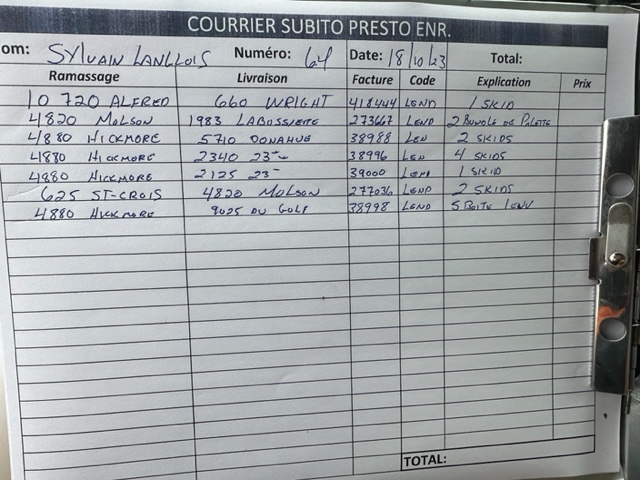 COURRIER SUBITO PRESTO ENR.
om: SYLVAIN LANGLOIS Numéro: 64 Date: 18/10/23 Total:
Ramassage Livraison Facture Code Explication Prix
10 720 ALFRED 660 WRIGHT 418444 LEND 1 SKID
4820 MOLSON 1983 273667 LEND 2 BUNDLE DE PALETTE
4880 HICKMORE 5710 DONAHUE 38988 LEN 2 SKIDS
4880 HICKMORE 2340 23 38996 LEN 4 SKIDS
4880 HICKMORE 2125 23 39000 LEND 1 SKID
625 ST-CROIS 4820 MOLSON 277036 LEND 2 SKIDS
4880 HICKMORE 9025 DU GOLF 38998 LEND 5 BOITE
TOTAL: